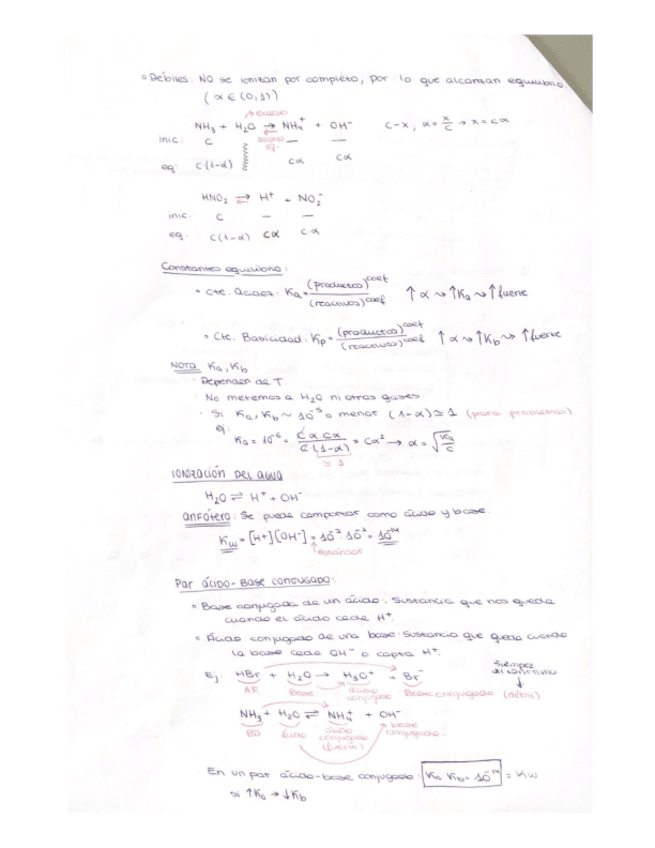 • Débiles: NO se ionizan por completo, por lo que alcanzan equilibrio
(α ∈ (0,1))
↗ exceso
NH₃ + H₂O ⇄ NH₄⁺ + OH⁻ c-x, α = x/c → x = cα
inic: c — —
eq: c(1-α) cα cα
HNO₂ ⇄ H⁺ + NO₂⁻
inic. c — —
eq. c(1-α) cα cα
Constantes equilibrio:
• Cte. Acidez: Ka = (productos)^coef / (reactivos)^coef ↑α ↝ ↑Ka ↝ ↑fuerte
• Cte. Basicidad: Kp = (productos)^coef / (reactivos)^coef ↑α ↝ ↑Kb ↝ ↑fuerte
NOTA Ka, Kb
· Dependen de T.
· No metemos a H₂O ni otros gases
· Si Ka, Kb ~ 10⁻⁵ o menor (1-α) ≃ 1 (para problemas)
ej:
Ka = 10⁻⁶ = cα cα / c(1-α) = cα² → α = √(Ka/c)
≃ 1
IONIZACIÓN DEL AGUA
H₂O ⇌ H⁺ + OH⁻
anfótero: Se puede comportar como ácido y base.
Kw = [H+][OH⁻] = 10⁻⁷ · 10⁻⁷ = 10⁻¹⁴
Par ácido-Base conjugado:
• Base conjugada de un ácido: Sustancia que nos queda
cuando el ácido cede H⁺.
• Ácido conjugado de una base: Sustancia que queda cuando
la base cede OH⁻ o capta H⁺.
Siempre
Ej: HBr + H₂O → H₃O⁺ + Br⁻
A.F. Base ácido conjugado Base conjugada (débil)
NH₃ + H₂O ⇌ NH₄⁺ + OH⁻
BD ácido ácido conjugado (fuerte) base conjugada.
· En un par ácido-base conjugado: Ka · Kb = 10⁻¹⁴ = Kw
si ↑Ka → ↓Kb